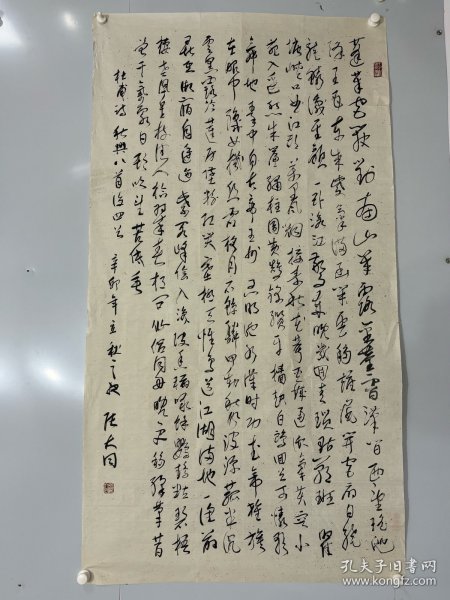 蓬莱宫阙对南山承露金茎霄汉间西望瑶池
降王母东来紫气满函关云移雉尾开宫扇日绕
龙鳞识圣颜一卧沧江惊岁晚几回青琐点朝班 瞿
塘峡口曲江头万里风烟接素秋花萼夹城通御气芙蓉小
苑入边愁珠帘绣柱围黄鹄锦缆牙樯起白鸥回首可怜歌
舞地秦中自古帝王州昆明池水汉时功武帝旌旗
在眼中织女机丝虚夜月石鲸鳞甲动秋风波漂菰米沉
云黑露冷莲房坠粉红关塞极天惟鸟道江湖满地一渔翁
昆吾御宿自逶迤紫阁峰阴入渼陂香稻啄馀鹦鹉粒碧梧
栖老凤凰枝佳人拾翠春相问仙侣同舟晚更移彩笔昔
曾干气象白头吟望苦低垂
杜甫诗秋兴八首后四首 辛卯年立秋之夜 大同
孔夫子旧书网